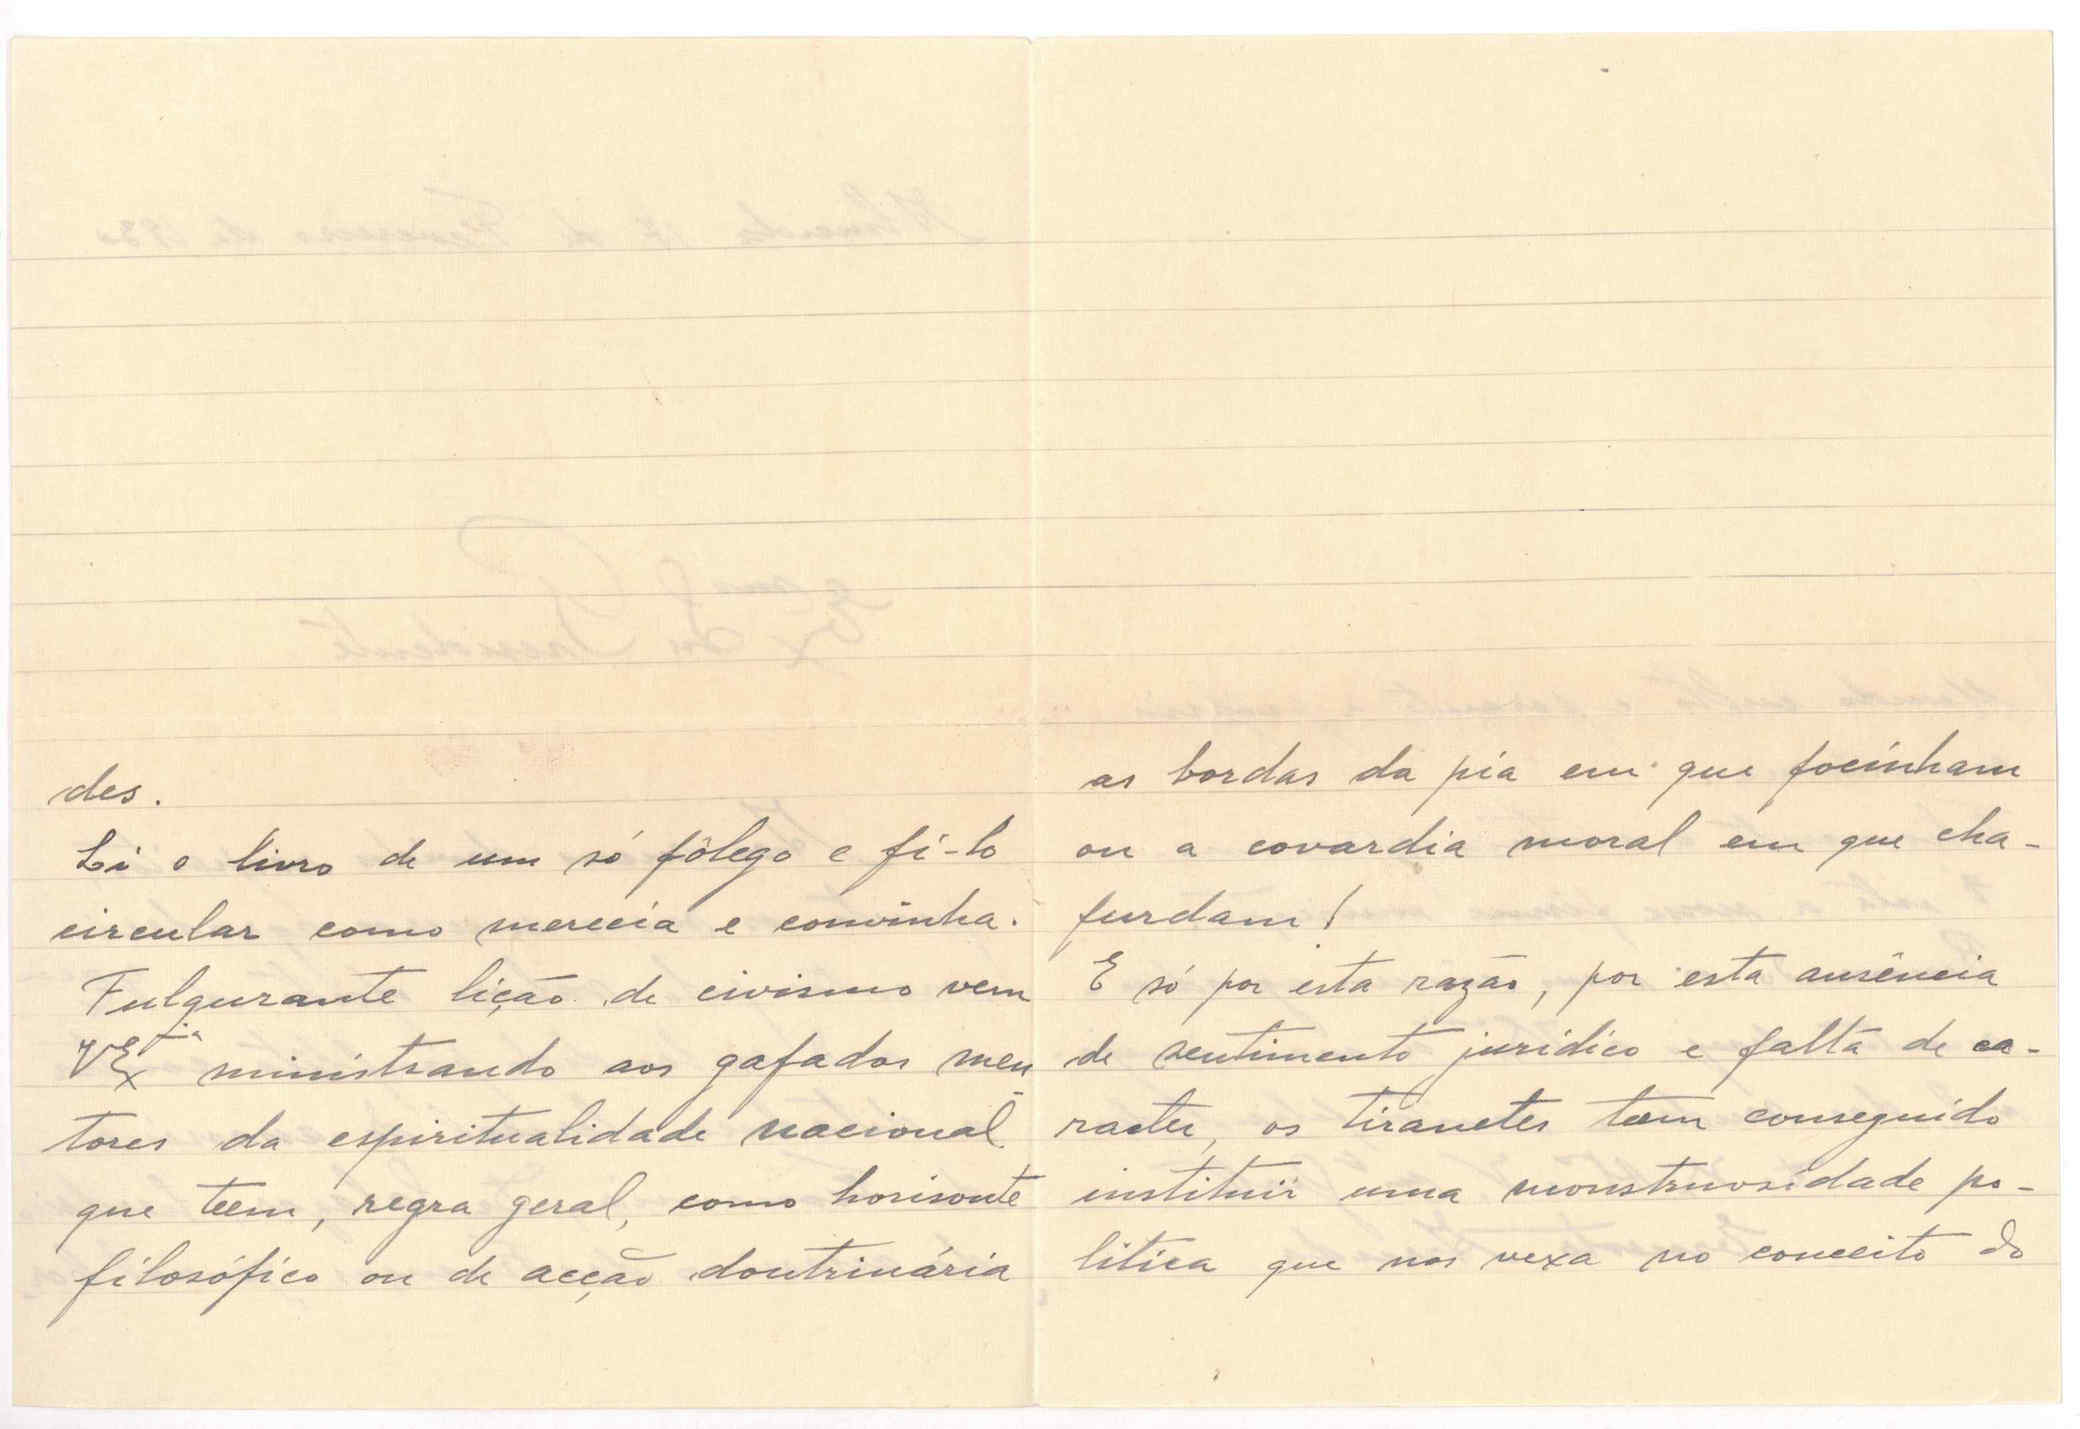 des.
Li o livro de um só fôlego e fi-lo
circular como merecia e convinha.
Fulgurante lição de civismo vem
V Ex.ia ministrando aos gafados men
tores da espiritualidade nacional
que teem, regra geral, como horisonte
filosófico ou de acção doutrinária
as bordas da pia em que focinham
ou a covardia moral em que cha-
furdam!
E só por esta razão, por esta ausência
de sentimento juridico e falta de ca-
racter, os tiranetes teem conseguido
instituir uma monstruosidade po-
litica que nos vexa no conceito do